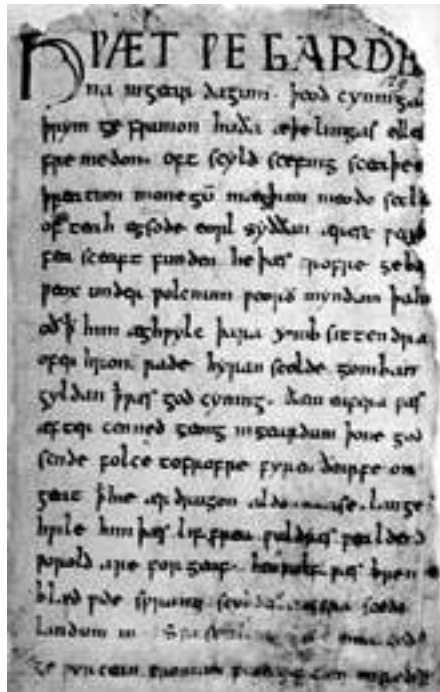 HǷÆT ǷE GARDE
na ingear dagum. þeod cyninga
þrym ge frunon huða æþelingas elle
fremedon. oft scyld scefing sceaþe
þreatum monegū mægþum meodo setla
of teah egsode eorl syððan ærest ƿear
fea sceaft funden he þæs frofre geba
ƿeox under ƿolcnum ƿeorð myndum þah
oð ꝥ him æghƿylc þara ymb sittendra
ofer hron rade hyran scolde gomban
gyldan ꝥ ƿæs god cyning. ðæm eafera ƿæs
æfter cenned geong ingeardum þone god
sende folce tofrofre fyren ðearfe on
geat ꝥ hie ær drugon aldor ase. lange
hƿile him þæs lif frea ƿuldres ƿealdend
ƿorold are for geaf. beoƿulf ƿæs breme
blæd ƿide sprang scyldes eafera scede
landum in
ge ƿyrcean fromum feoh giftum